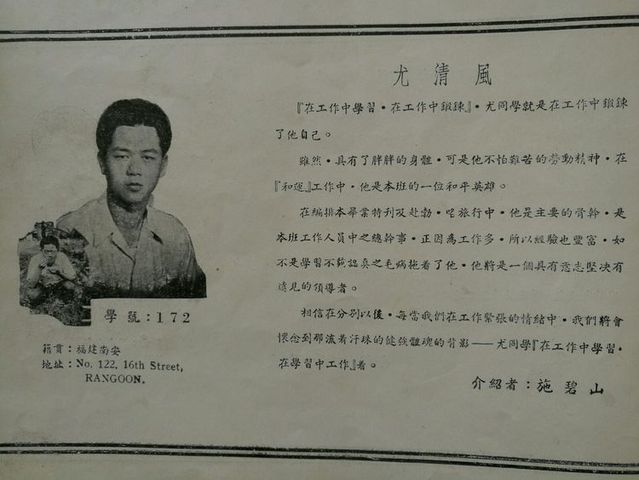 尤清風
『在工作中學習，在工作中鍛鍊』，尤同學就是在工作中鍛鍊
了他自己。
雖然，具有了胖胖的身體，可是他不怕艱苦的勞動精神，在
『和運』工作中，他是本班的一位和平英雄。
在編排本畢業特刊及赴勃，咤旅行中，他是主要的骨幹，是
本班工作人員中之總幹事，正因為工作多，所以經驗也豐富，如
不是學習不夠認眞之毛病拖着了他，他將是一個具有意志堅决有
遠見的領導者。
相信在分別以後，每當我們在工作緊張的情緒中，我們將會
懷念到那流着汗珠的健強體魂的背影——尤同學『在工作中學習，
在學習中工作』着。
介紹者：施碧山
學號：172
籍貫：福建南安
地址：No. 122, 16th Street,
RANGOON.